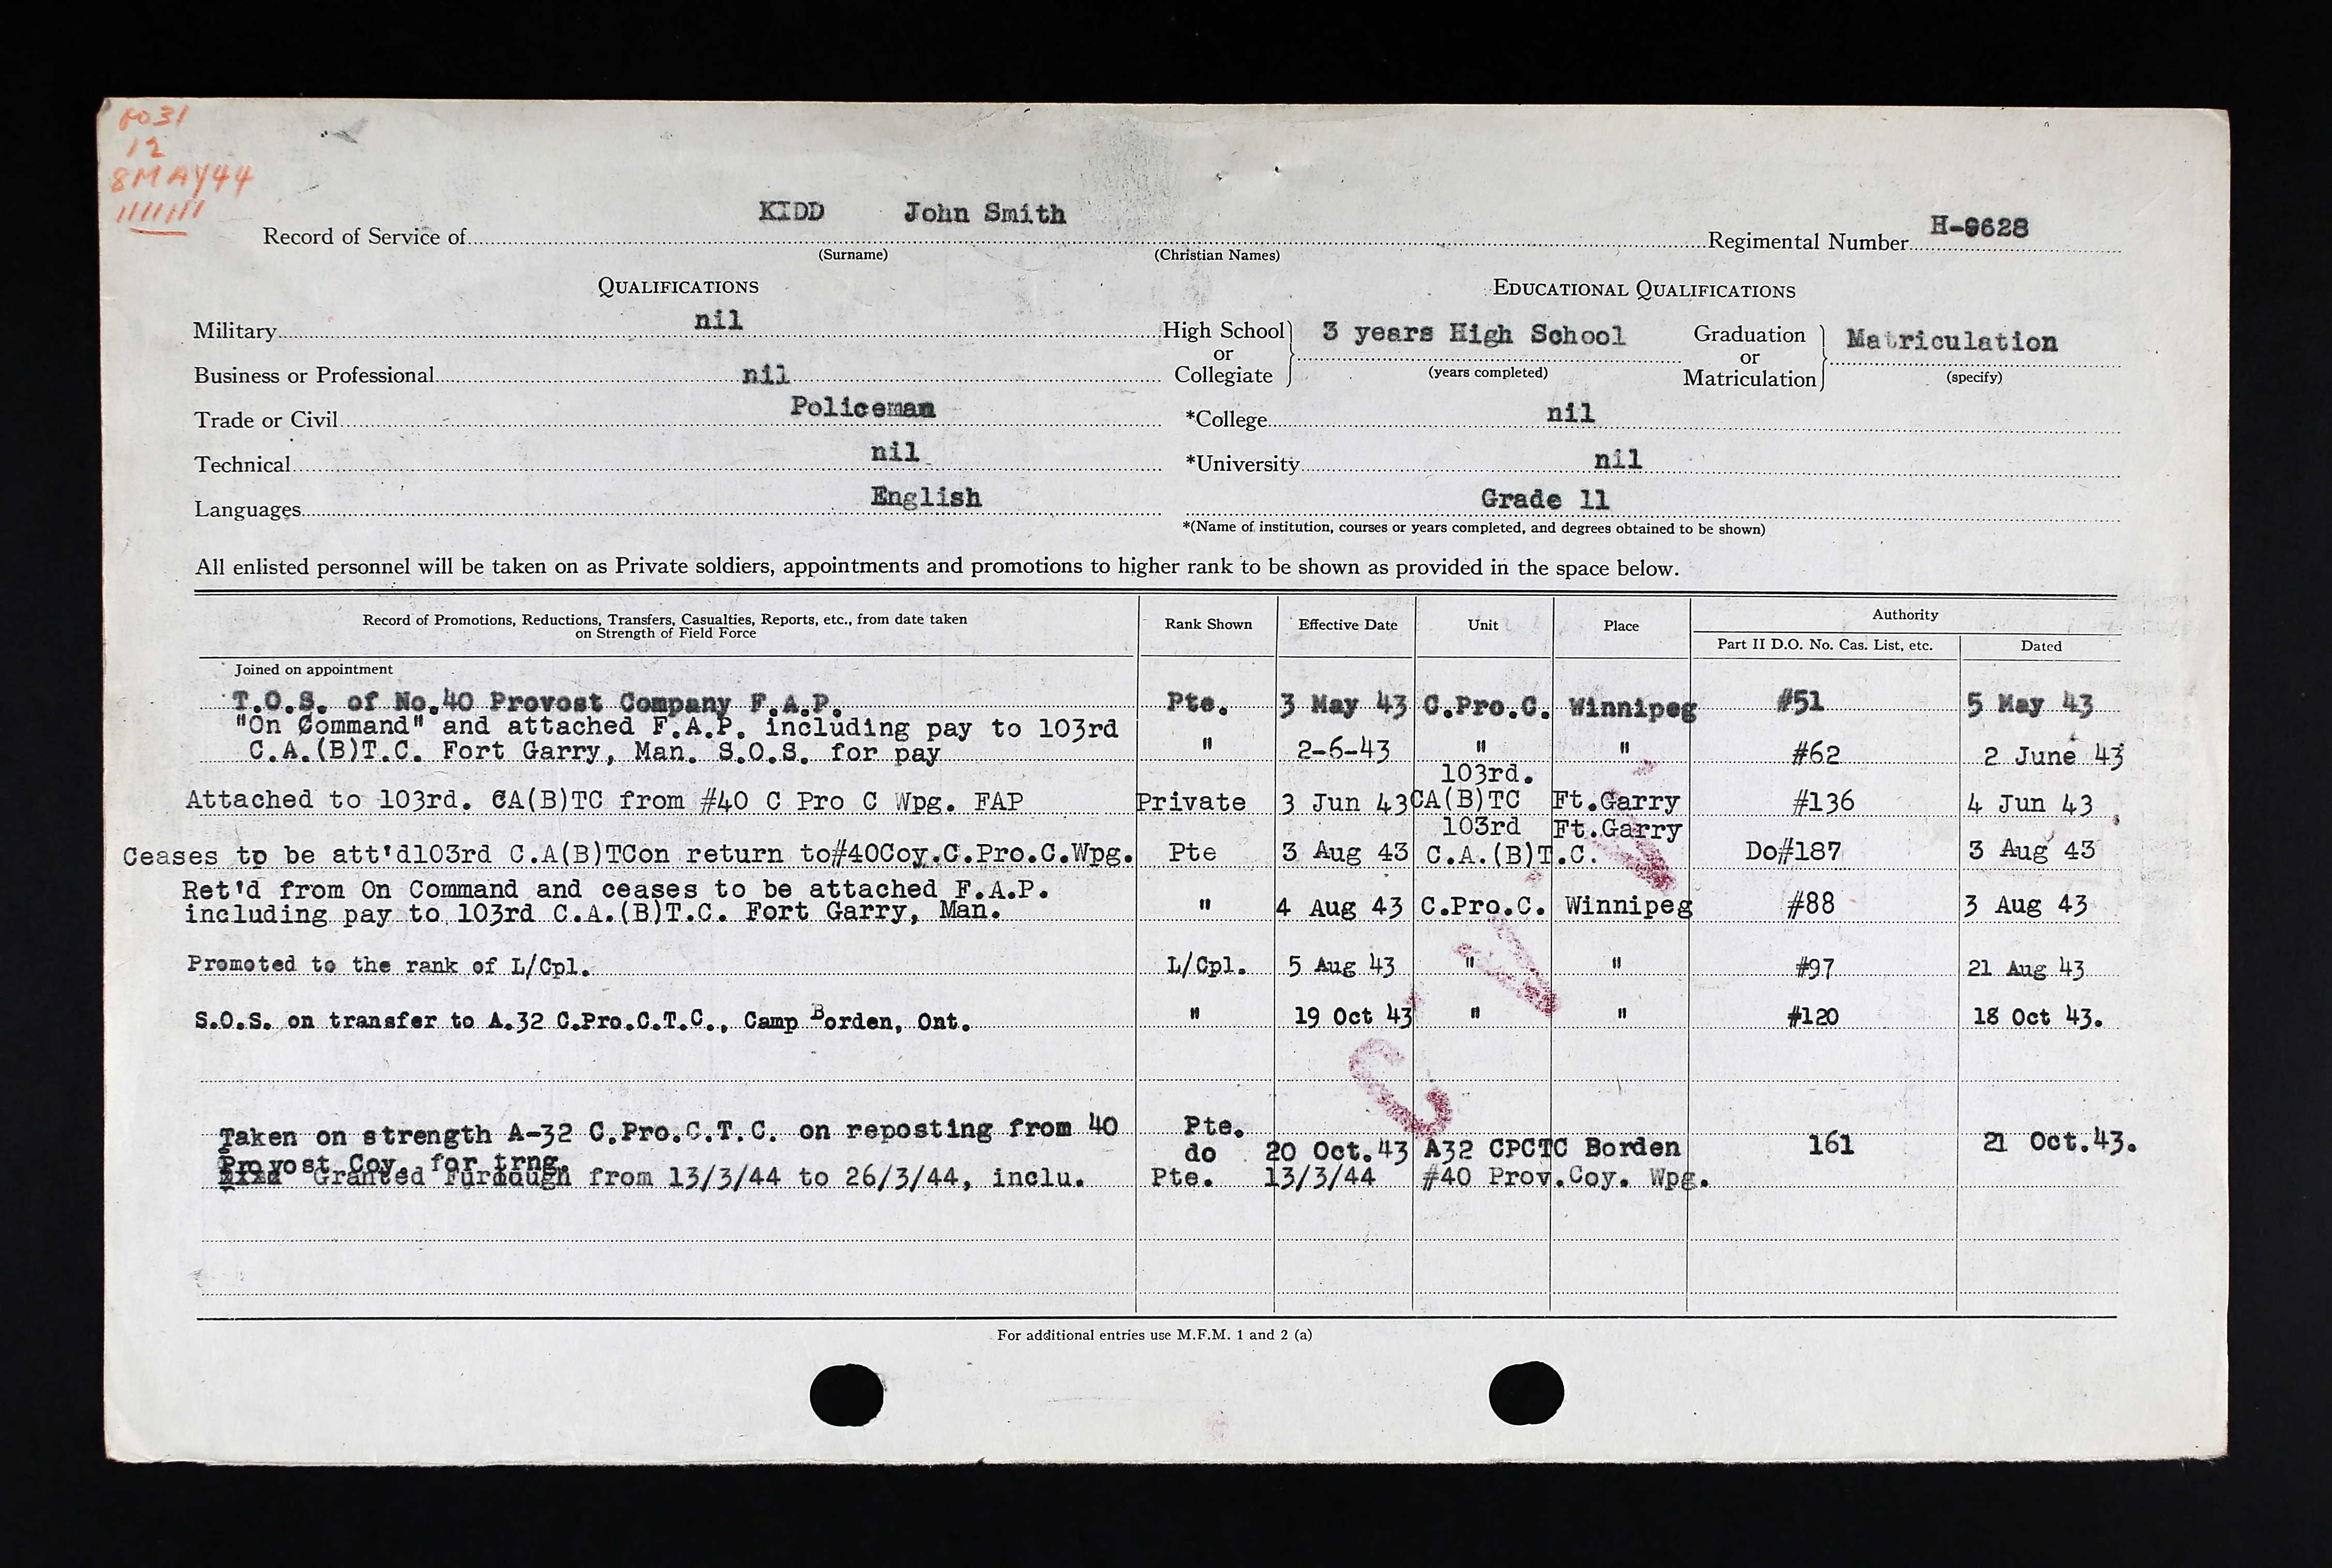 8MAY44
KIDD John Smith H-9628
Record of Service of Regimental Number
(Surname) (Christian Names)
QUALIFICATIONS EDUCATIONAL QUALIFICATIONS
Military nil High School 3 years High School Graduation Matriculation
or or
Business or Professional nil Collegiate (years completed) Matriculation (specify)
Trade or Civil Policeman *College nil
Technical nil *University nil
Languages English Grade 11
*(Name of institution, courses or years completed, and degrees obtained to be shown)
All enlisted personnel will be taken on as Private soldiers, appointments and promotions to higher rank to be shown as provided in the space below.
Record of Promotions, Reductions, Transfers, Casualties, Reports, etc., from date taken on Strength of Field Force Rank Shown Effective Date Unit Place Authority
Part II D.O. No. Cas. List, etc. Dated
Joined on appointment
T.O.S. of No.40 Provost Company F.A.P. Pte. 3 May 43 C.Pro.C. Winnipeg #51 5 May 43
"On Command" and attached F.A.P. including pay to 103rd
C.A.(B)T.C. Fort Garry, Man. S.O.S. for pay " 2-6-43 " " #62 2 June 43
103rd.
Attached to 103rd. CA(B)TC from #40 C Pro C Wpg. FAP Private 3 Jun 43 CA(B)TC Ft.Garry #136 4 Jun 43
103rd Ft.Garry
Ceases to be att'd103rd C.A(B)TCon return to#40Coy.C.Pro.C.Wpg. Pte 3 Aug 43 C.A.(B)T.C. Do#187 3 Aug 43
Ret'd from On Command and ceases to be attached F.A.P.
including pay to 103rd C.A.(B)T.C. Fort Garry, Man. " 4 Aug 43 C.Pro.C. Winnipeg #88 3 Aug 43
Promoted to the rank of L/Cpl. L/Cpl. 5 Aug 43 " " #97 21 Aug 43
S.O.S. on transfer to A.32 C.Pro.C.T.C., Camp Borden, Ont. " 19 Oct 43 " " #120 18 Oct 43.
Taken on strength A-32 C.Pro.C.T.C. on reposting from 40 Pte.
Provost Coy. for trng. do 20 Oct.43 A32 CPCTC Borden 161 21 Oct.43.
Granted Furlough from 13/3/44 to 26/3/44, inclu. Pte. 13/3/44 #40 Prov.Coy. Wpg.
For additional entries use M.F.M. 1 and 2 (a)